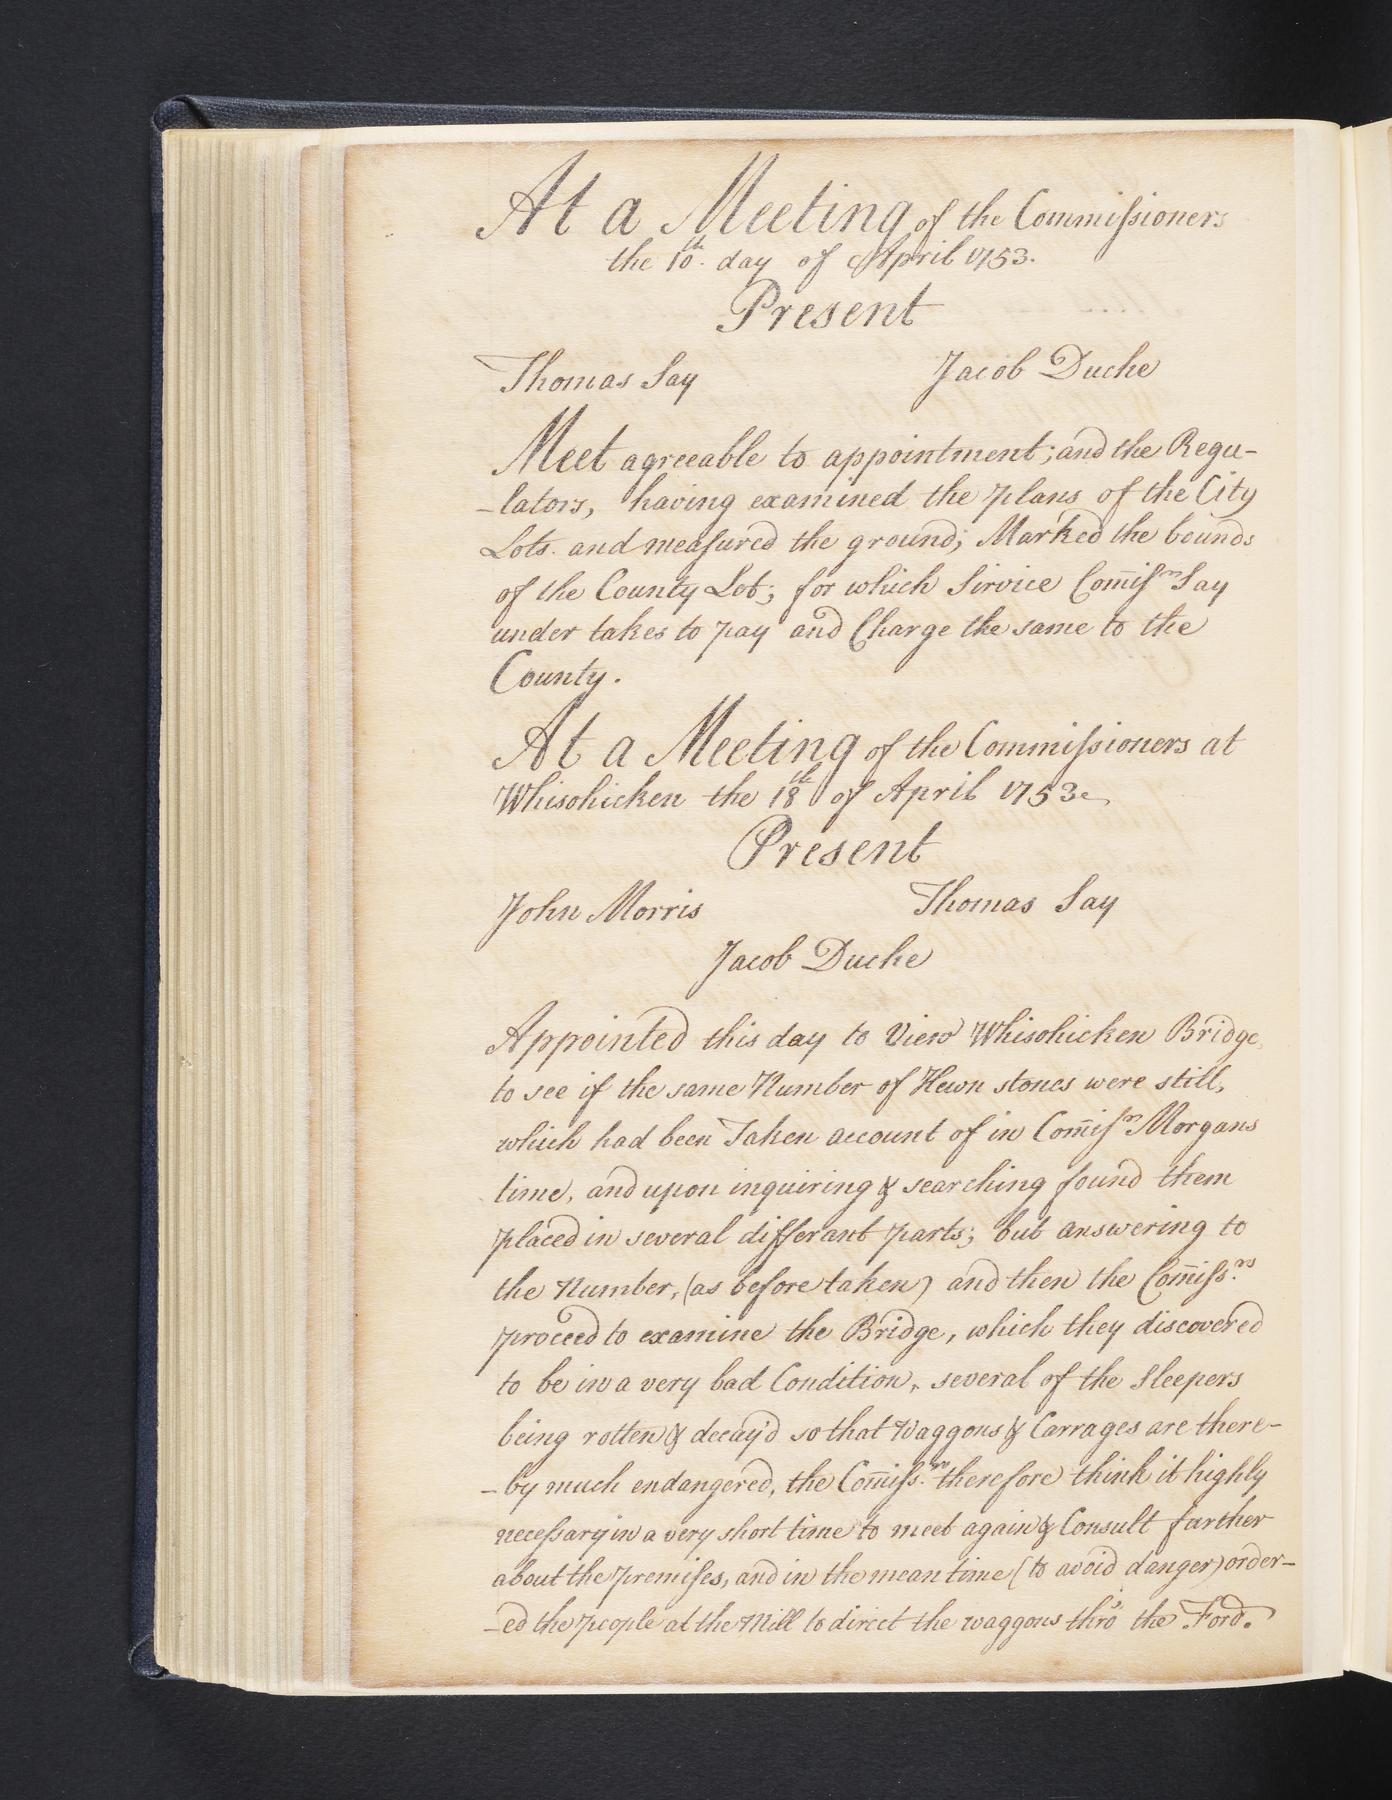 At a Meeting of the Commissioners
the 10th. day of April 1753.
Present
Thomas Say Jacob Duche
Meet agreeable to appointment; and the Regu-
-lators, having examined the plans of the City
Lots. and measured the ground; Marked the bounds
of the County Lot; for which Sirvice Com̄isrs Say
under takes to pay and Charge the same to the
County.
At a Meeting of the Commissioners at
Whisohicken the 18th of April 1753
Present
John Morris Thomas Say
Jacob Duche
Appointed this day to View Whisohicken Bridge,
to see if the same Number of Hewn stones were still,
which had been Taken account of in Com̄isrs Morgans
time, and upon inquiring & searching found them
placed in several differant parts; but answering to
the Number, (as before taken) and then the Com̄iss.rs
proceed to examine the Bridge, which they discovered
to be in a very bad Condition, several of the Sleepers
being rotten & decay'd so that Waggons & Carrages are there-
-by much endangered, the Com̄iss.rs therefore think it highly
necessary in a very short time to meet again & Consult further
about the premises, and in the mean time (to avoid danger) order-
-ed the people at the Mill to direct the waggons thro' the Ford.